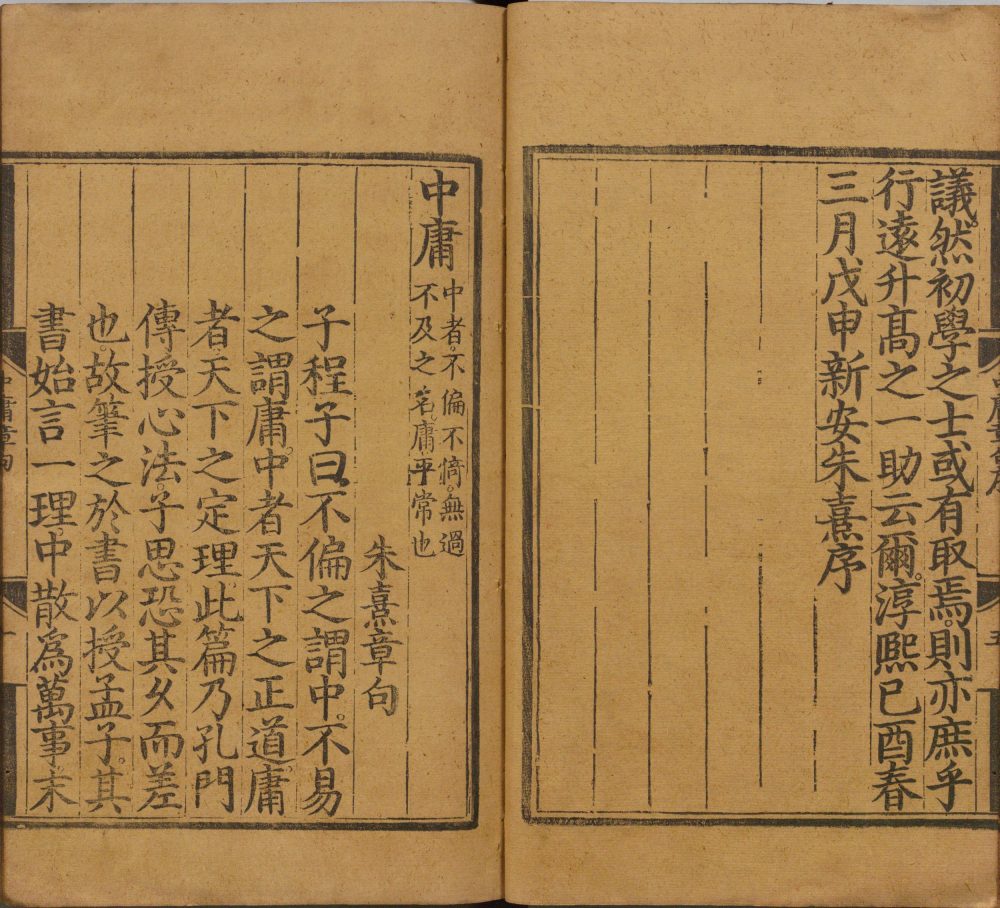 議然初學之士或有取焉則亦庶乎
行遠升高之一助云爾淳熙己酉春
三月戊申新安朱熹序
中庸
中者不偏不倚無過
不及之名庸平常也
朱熹章句
子程子曰不偏之謂中不易
之謂庸中者天下之正道庸
者天下之定理此篇乃孔門
傳授心法子思恐其久而差
也故筆之於書以授孟子其
書始言一理中散為萬事末
中庸章句